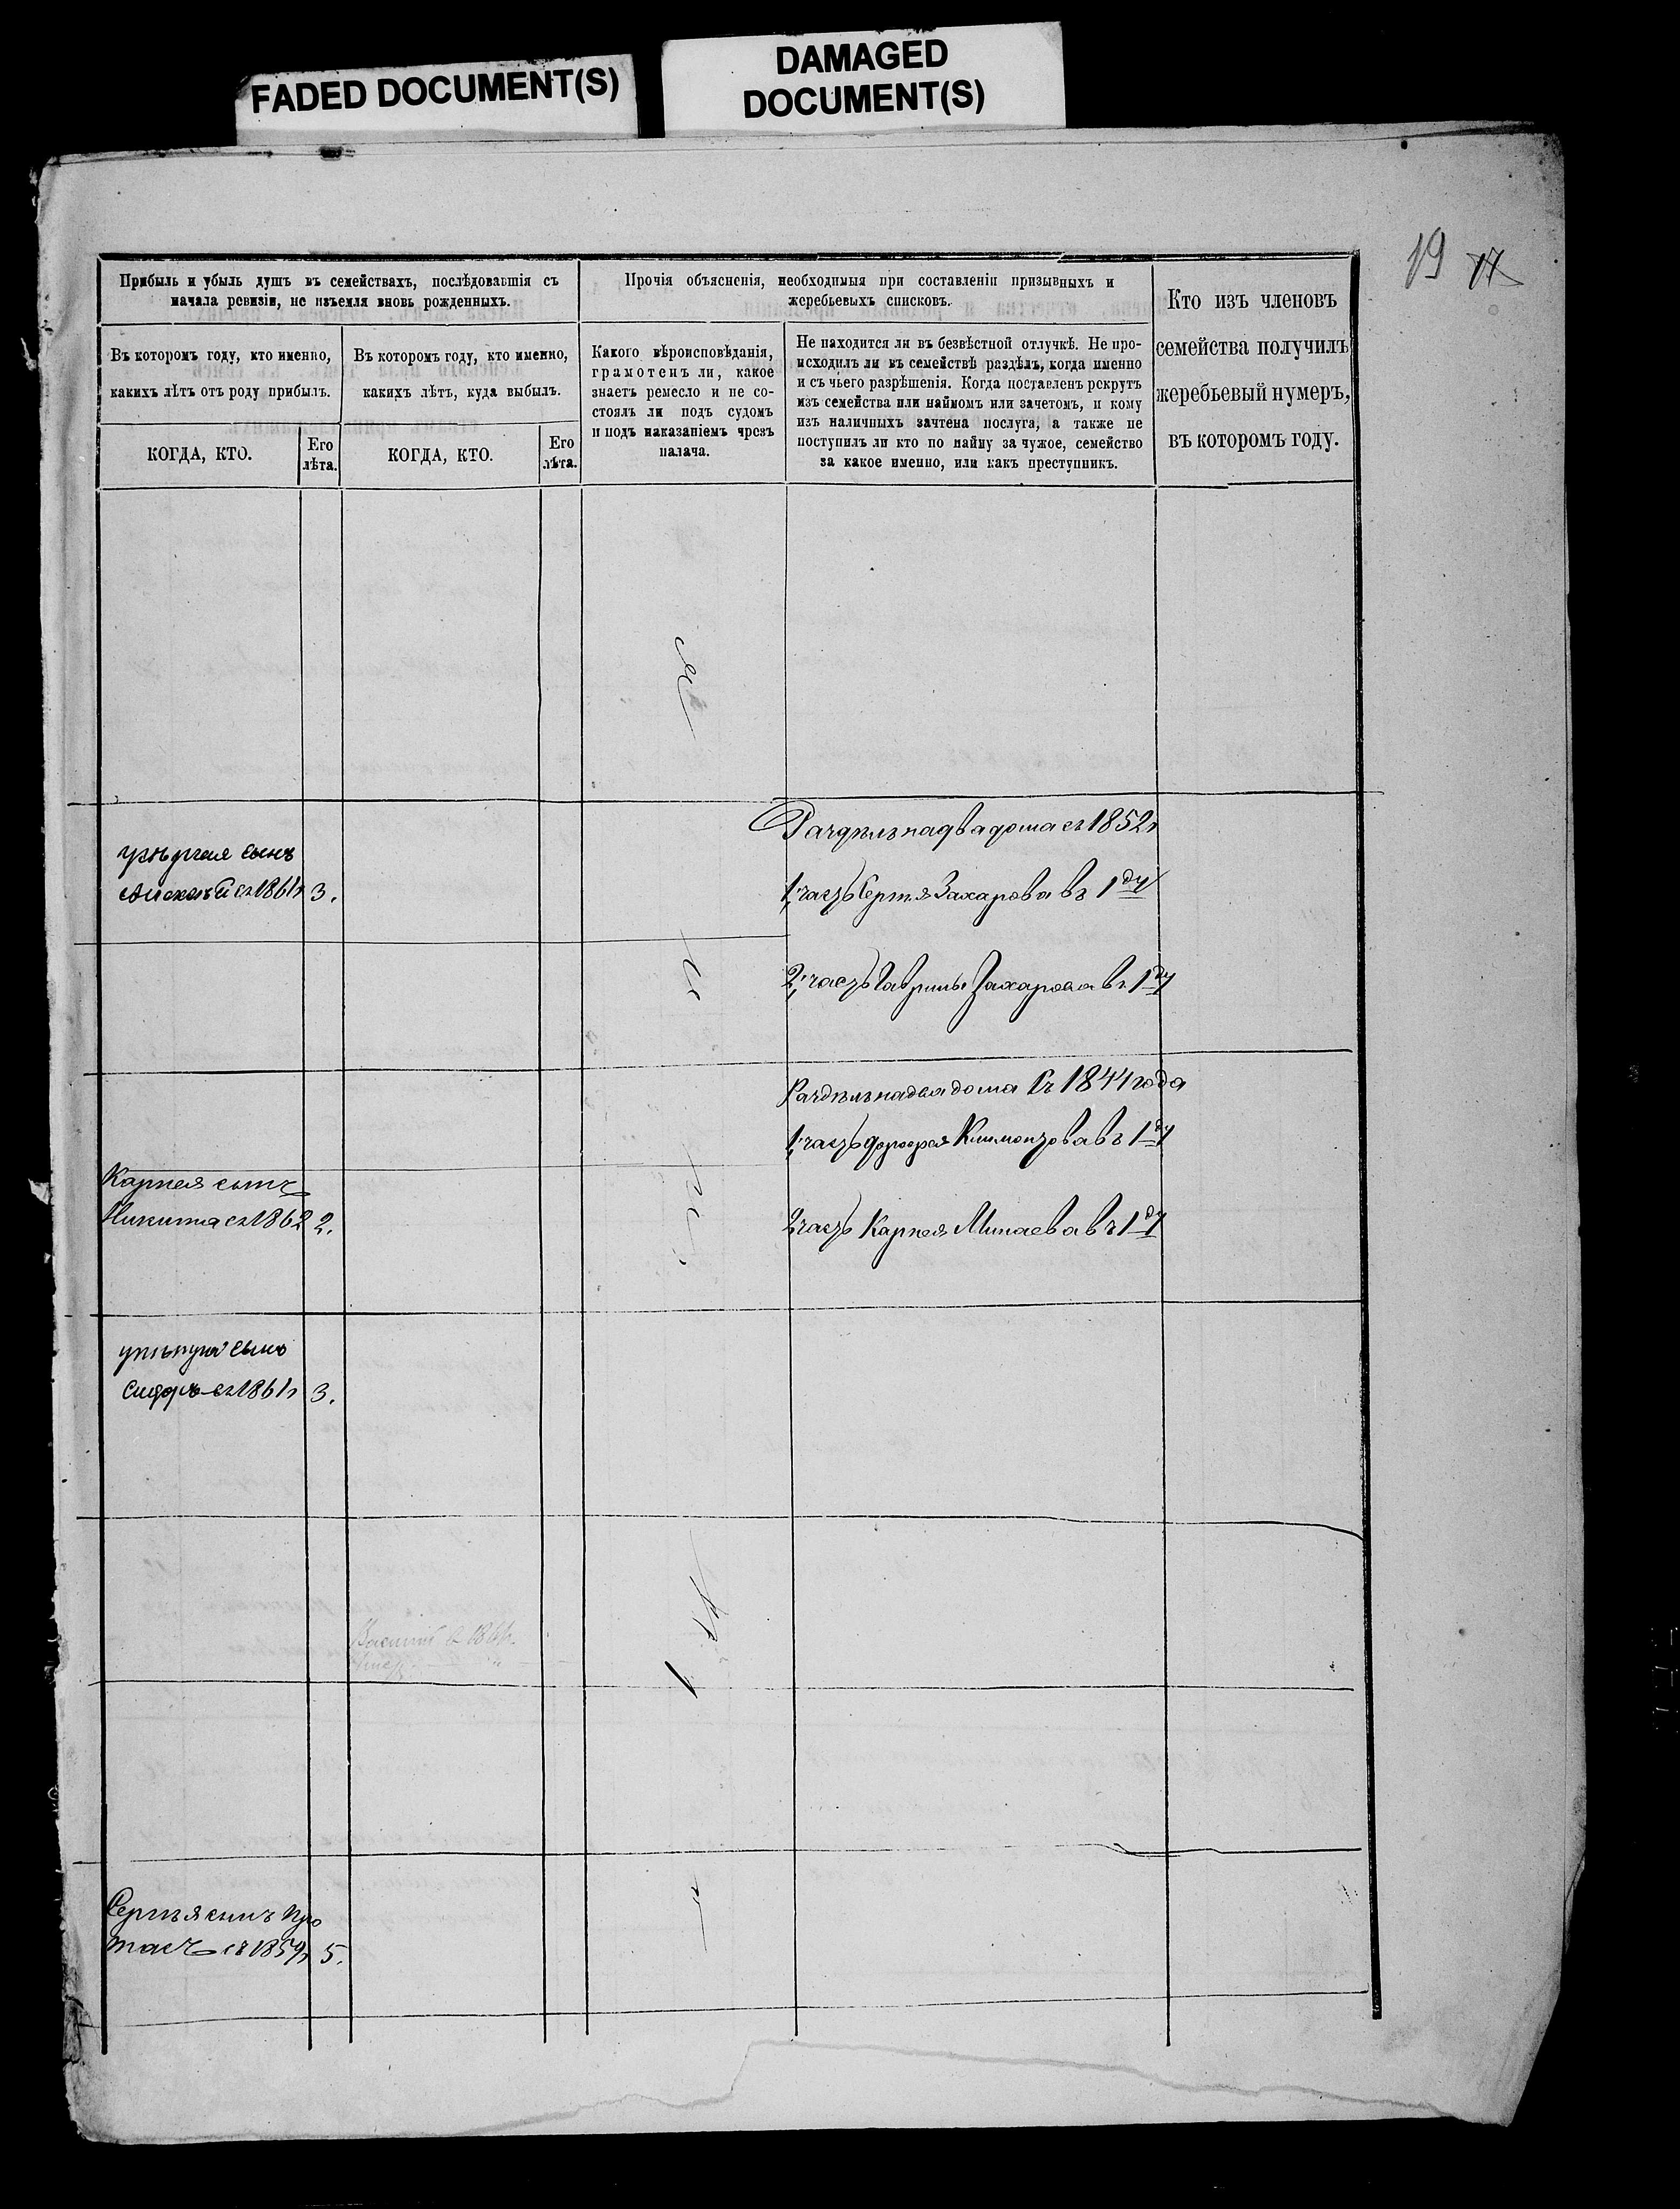 FADED DOCUMENT(S)
DAMAGED
DOCUMENT(S)
19 17
Прибыль и убыль душъ въ семействахъ, послѣдовавшія съ
начала ревизіи, не изъемля вновь рожденныхъ.
Прочія объясненія, необходимыя при составленіи призывныхъ и
жеребьевыхъ списковъ.
Кто изъ членовъ
семейства получилъ
жеребьевый нумеръ,
въ которомъ году.
Въ которомъ году, кто именно,
какихъ лѣтъ отъ роду прибылъ.
Въ которомъ году, кто именно,
какихъ лѣтъ, куда выбылъ.
Какого вѣроисповѣданія,
грамотенъ ли, какое
знаетъ ремесло и не со-
стоялъ ли подъ судомъ
и подъ наказаніемъ чрезъ
палача.
Не находится ли въ безвѣстной отлучкѣ. Не про-
исходилъ ли въ семействѣ раздѣлъ, когда именно
и съ чьего разрѣшенія. Когда поставленъ рекрутъ
изъ семейства или наймомъ или зачетомъ, и кому
изъ наличныхъ зачтена послуга, а также не
поступилъ ли кто по найму за чужое, семейство
за какое именно, или какъ преступникъ.
КОГДА, КТО.
Его
лѣта.
КОГДА, КТО.
Его
лѣта.
Раздѣлъ на два дома съ 1852г
сынъ
Алексѣй съ 1861г 3.
1, часть Сергѣя Захарова въ 1 ду
2, часть Гаврилы Захарова въ 1 ду
Раздѣлъ на два дома съ 1844 года
1, часть Климонтова въ 1 ду
Карпея сынъ
Никита съ 1862 2.
2 часть Карпея Минаева въ 1 ду
сынъ
Сидоръ съ 1861г 3.
Василій в 1861г.
Сергѣя сынъ Про
тасъ съ 1859г 5.